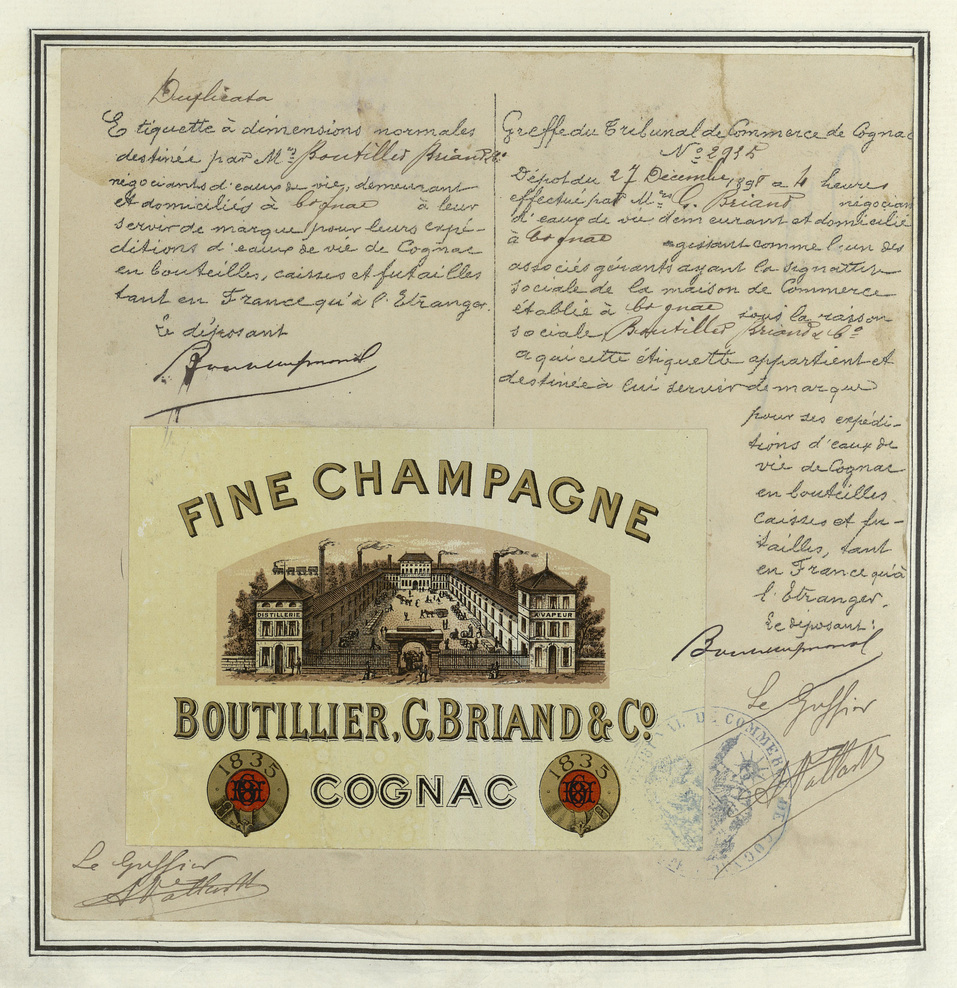 Duplicata
Etiquette à dimensions normales
destinée par Mrs Boutillier Briand & Co
négociants d'eaux de vie, demeurant
et domiciliés à Cognac à leur
servir de marque pour leurs expé-
ditions d'eaux de vie de Cognac
en bouteilles, caisses et futailles
tant en France qu'à l'Etranger.
Le déposant
Greffe du Tribunal de Commerce de Cognac
No 2915
Dépôt du 27 Décembre 1898 a 4 heures
effectué par Mr G. Briand négociant
d'eaux de vie demeurant et domicilié
à Cognac agissant comme l'un des
associés gérants ayant la signature
sociale de la maison de Commerce
établie à Cognac sous la raison
sociale Boutillier Briand & Co
a qui cette étiquette appartient et
destinée à lui servir de marque
pour ses expédi-
tions d'eaux de
vie de Cognac
en bouteilles
caisses et fu-
tailles, tant
en France qu'à
l'Etranger.
Le déposant:
Le Greffier
FINE CHAMPAGNE
DISTILLERIE
A VAPEUR
BOUTILLIER, G. BRIAND & Co
1835
COGNAC
1835
TRIBUNAL DE COMMERCE DE COGNAC
Le Greffier